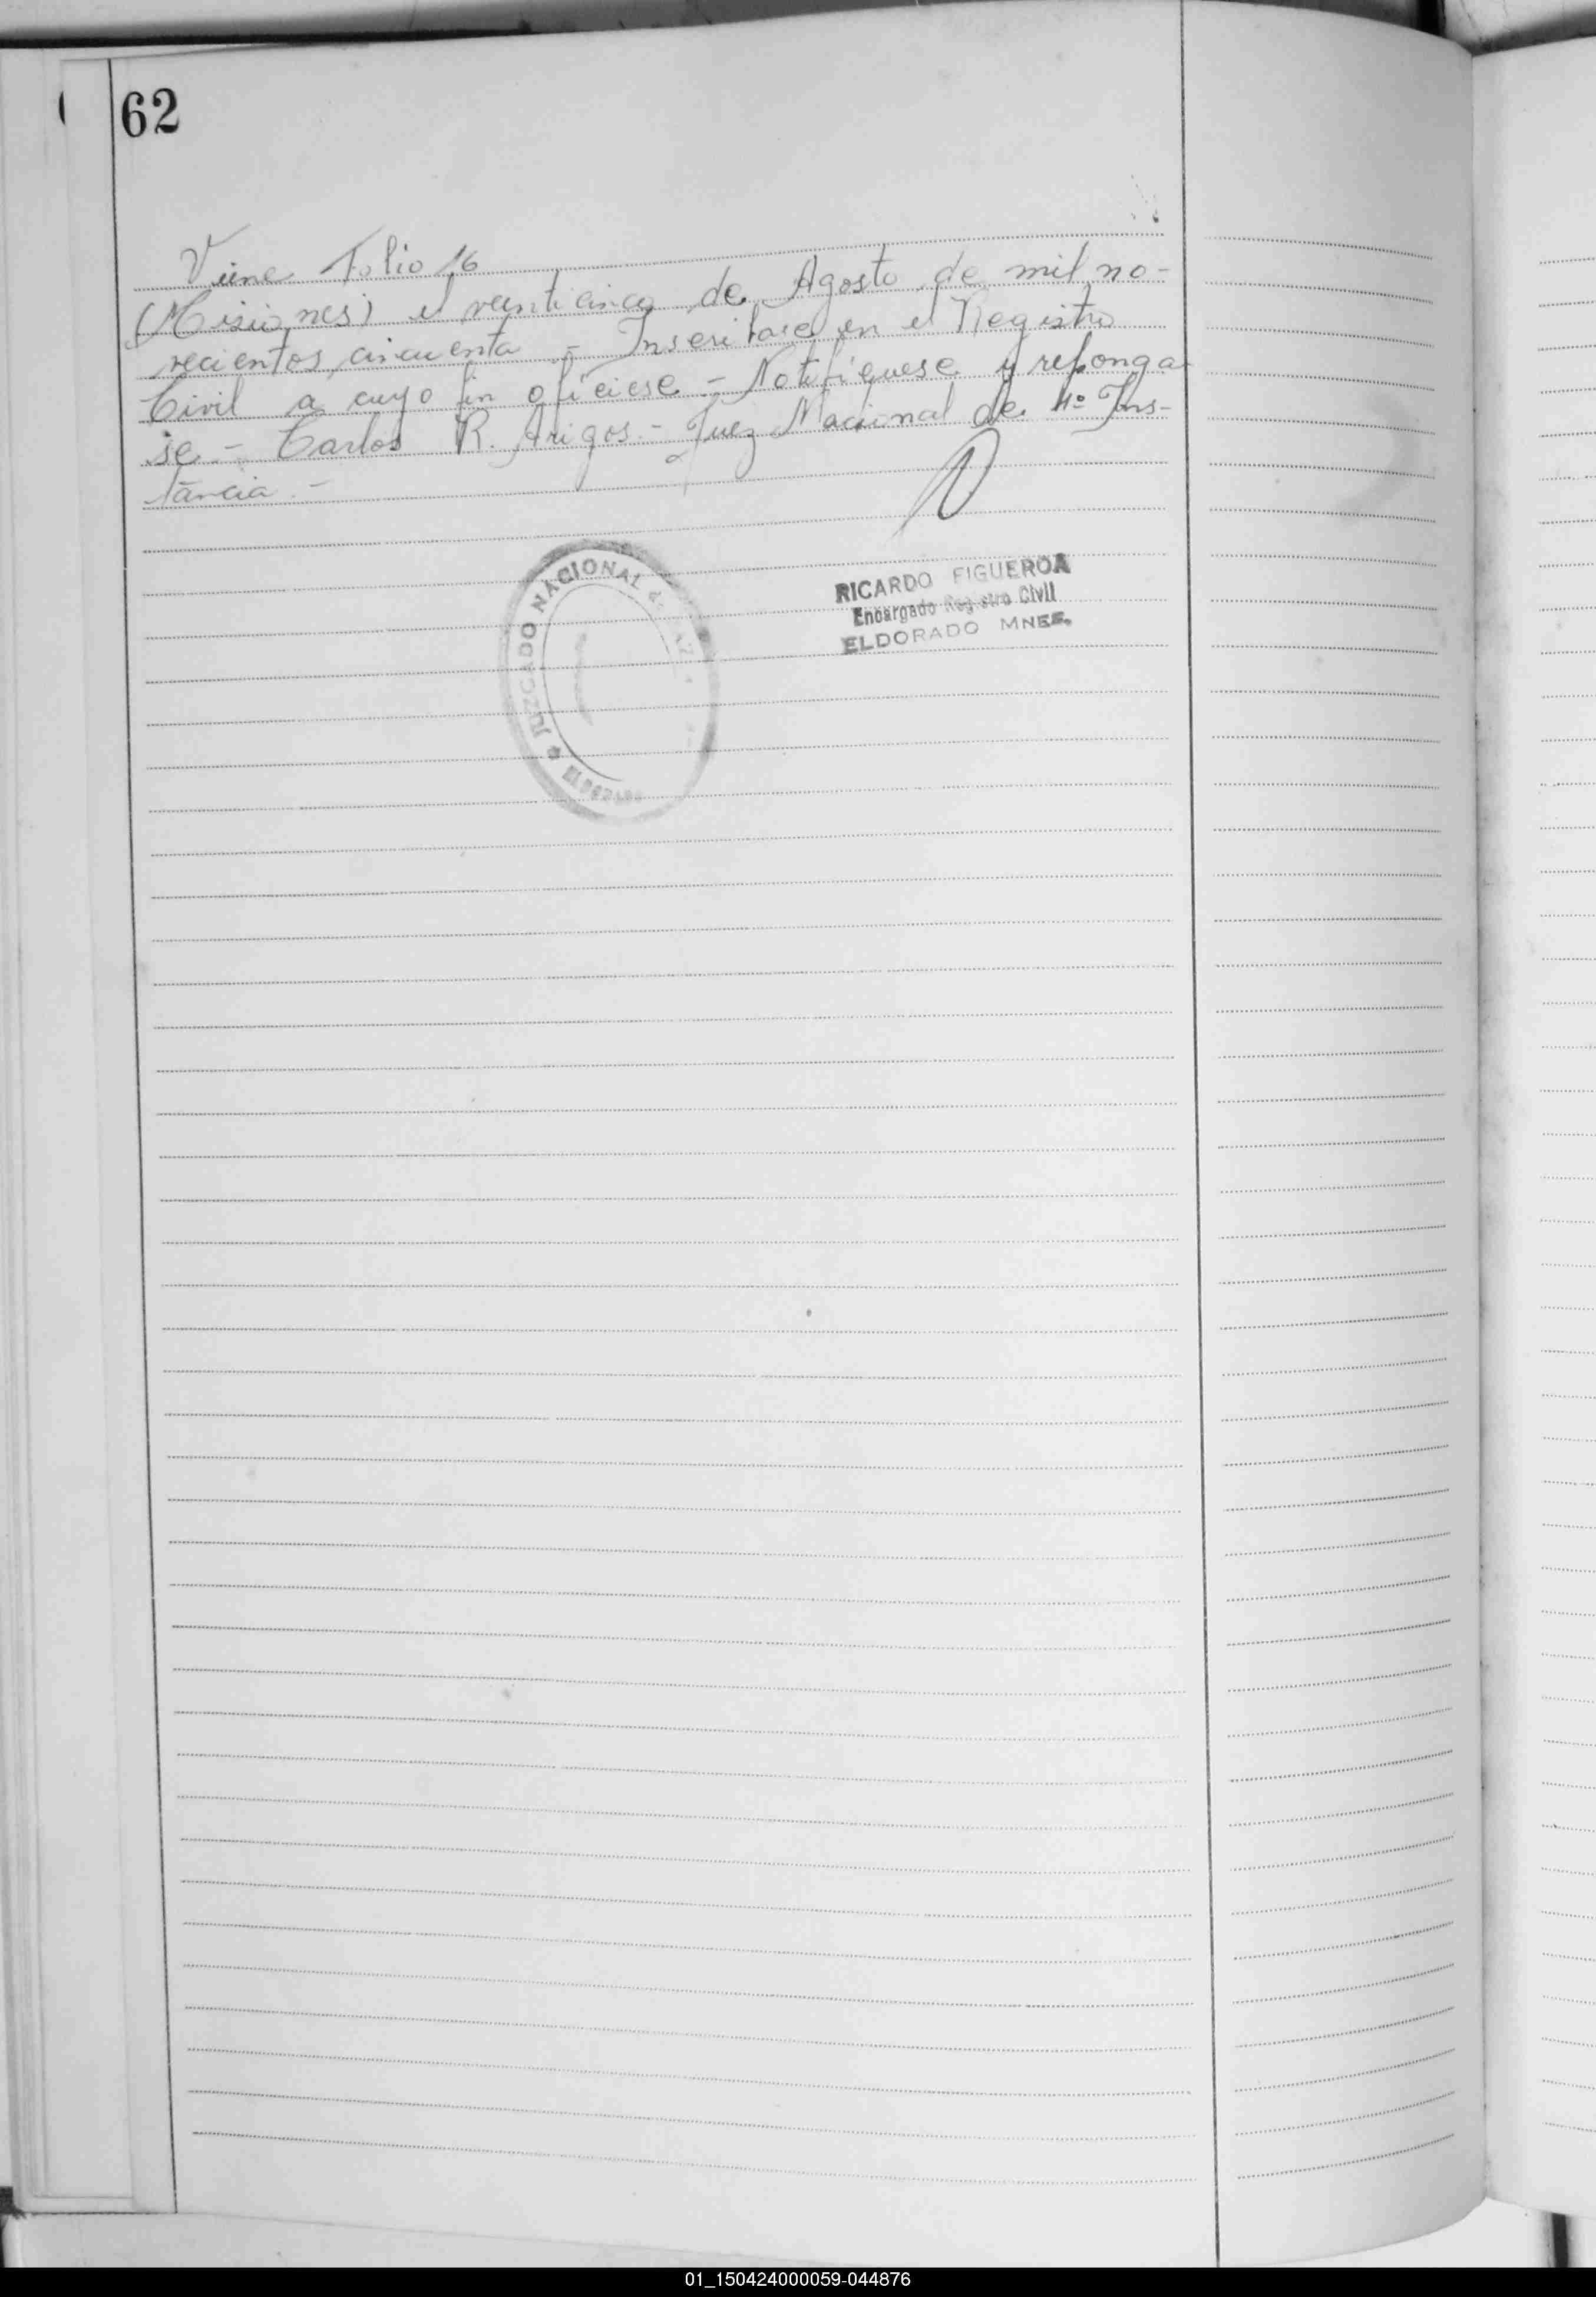 62
Viene Folio 16
(Misiones) el veinticinco de Agosto de mil no-
vecientos cincuenta - Inscribase en el Registro
Civil a cuyo fin ofíciese - Notifíquese y reponga
se - Carlos R. Arigos - Juez Nacional de 1º Ins-
tancia. -
JUZGADO NACIONAL de PAZ
ELDORADO
RICARDO FIGUEROA
Encargado Registro Civil
ELDORADO MNES.
01_150424000059-044876